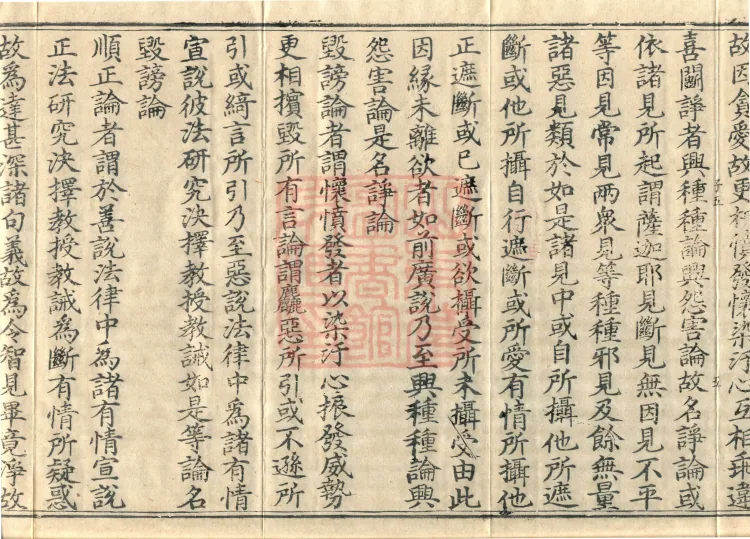 故因貪愛故更相憤發懷染汙心互相乖違
喜鬪諍者興種種論興怨害論故名諍論或
依諸見所起謂薩迦耶見斷見無因見不平
等因見常見兩衆見等種種邪見及餘無量
諸惡見類於如是諸見中或自所攝他所遮
斷或他所攝自行遮斷或所愛有情所攝他
正遮斷或已遮斷或欲攝受所未攝受由此
因緣未離欲者如前廣說乃至興種種論興
怨害論是名諍論
毀謗論者謂懷憤發者以染汙心振發威勢
更相擯毀所有言論謂麤惡所引或不遜所
引或綺言所引乃至惡說法律中為諸有情
宣說彼法研究決擇教授教誡如是等論名
毀謗論
順正論者謂於善說法律中為諸有情宣說
正法研究決擇教授教誡為斷有情所疑惑
故為達甚深諸句義故為令智見畢竟淨故